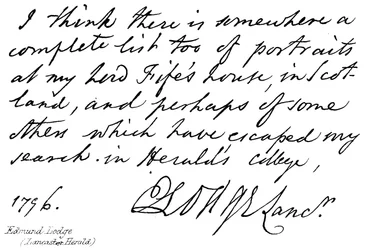 I think there is somewhere a
complete list too of portraits
at my Lord Fife's house, in Scot-
land, and perhaps of some
others which have escaped my
search in Herald's College,
1796. ELodge Lancr.
Edmund Lodge
(Lancaster Herald.)